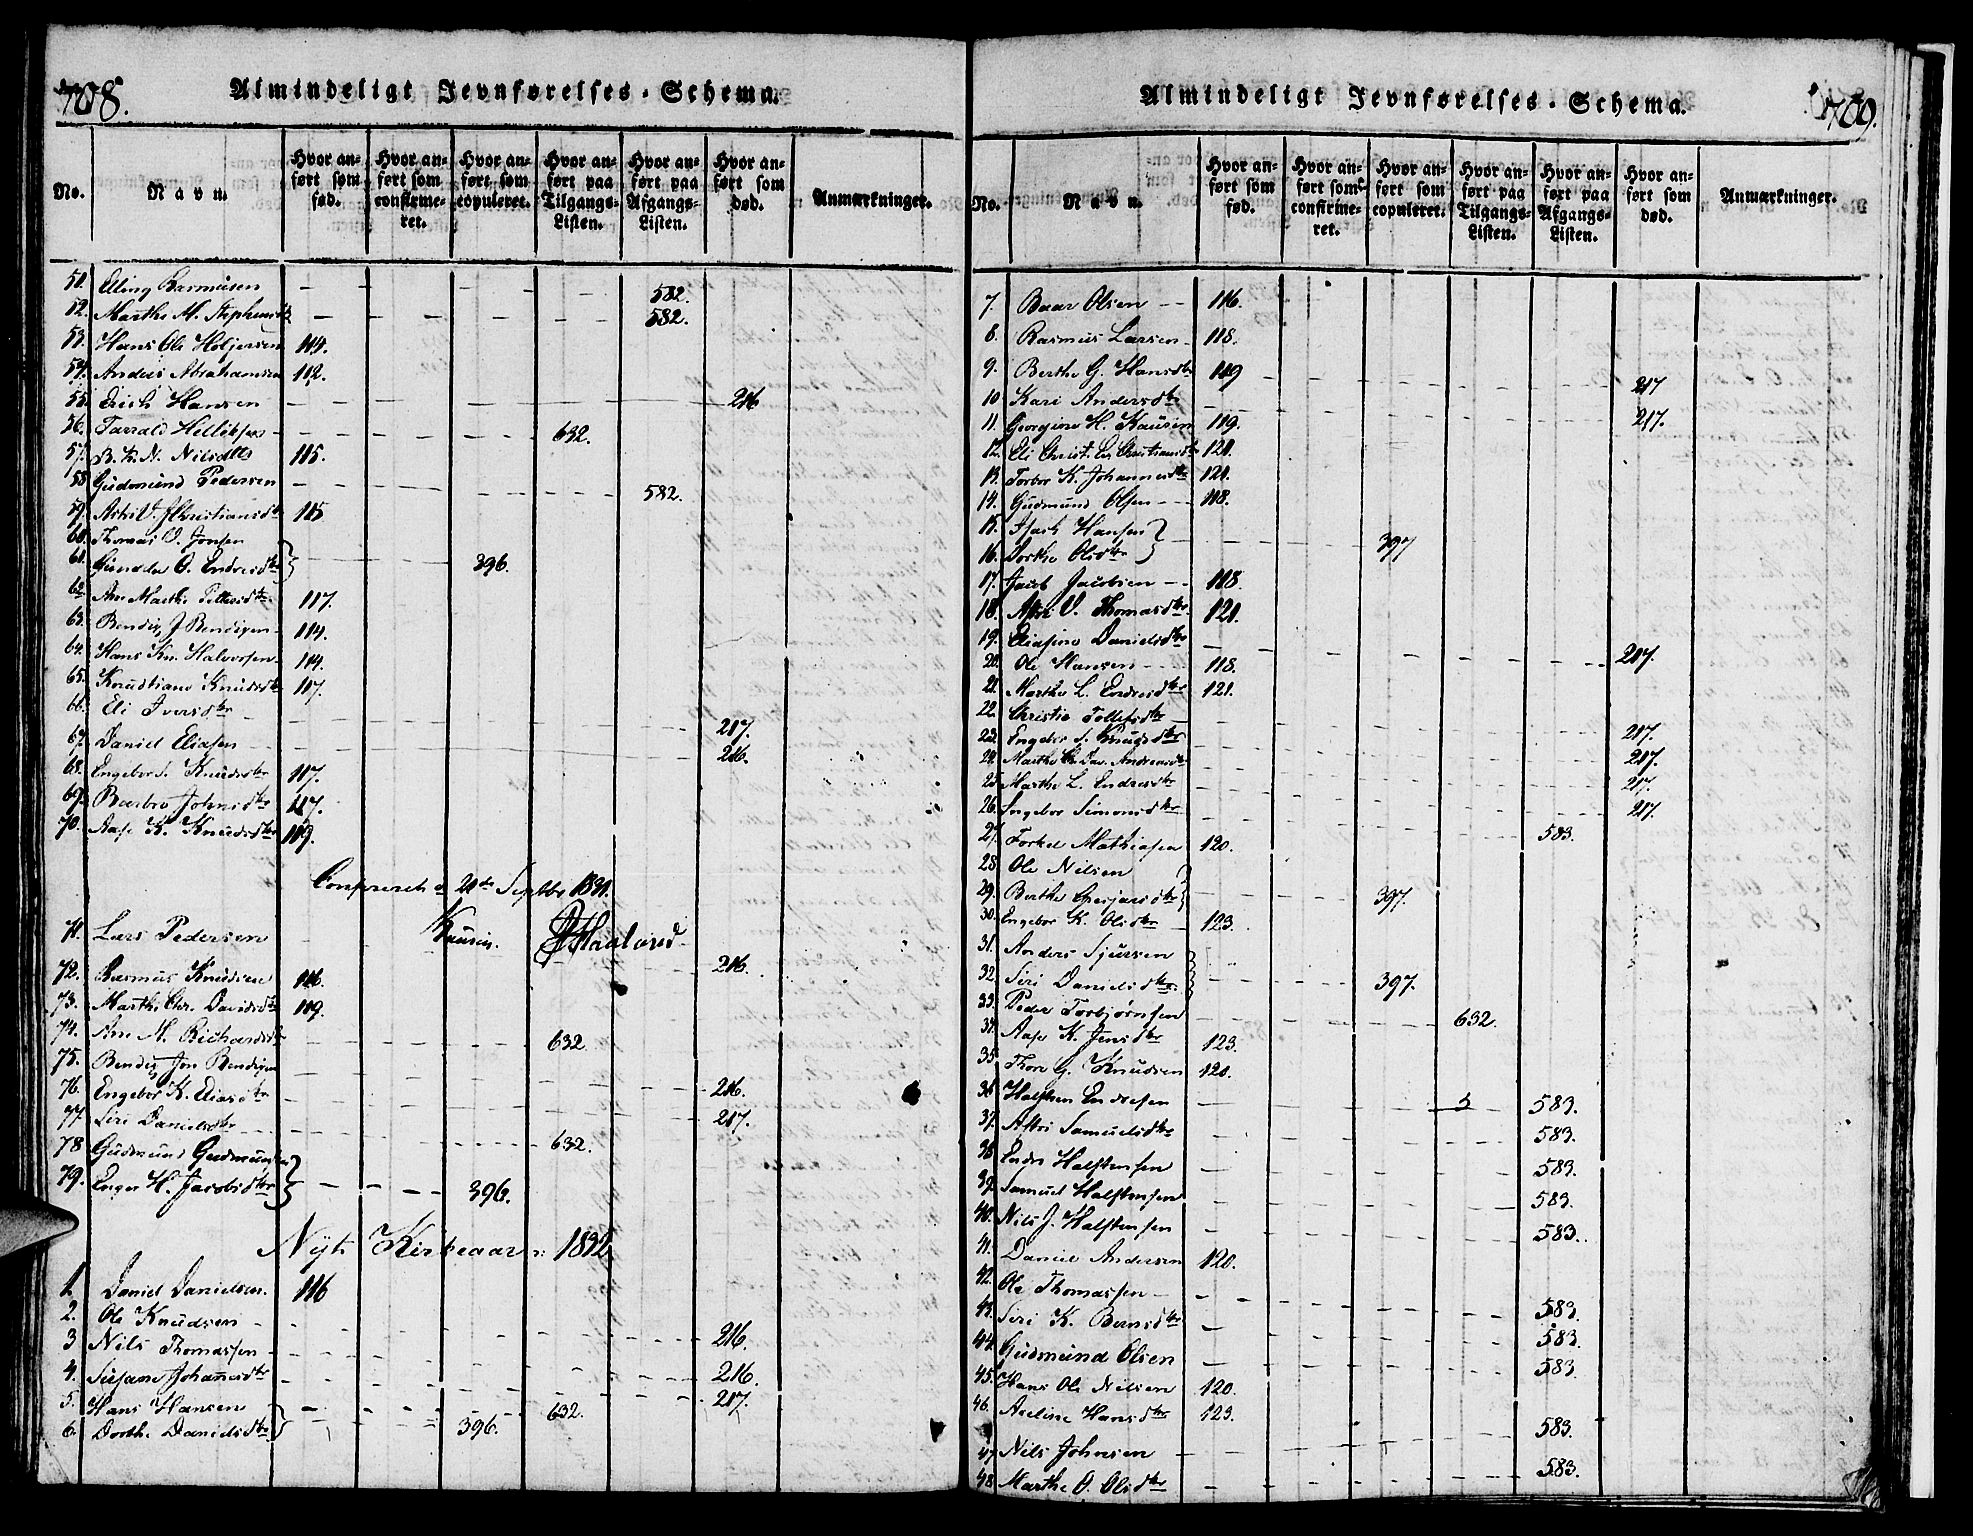 708.
Almindeligt Jevnførelses-Schema.
No.
Navn.
Hvor anført som fød.
Hvor anført som confirmeret.
Hvor anført som copuleret.
Hvor anført paa Tilgangs-Listen.
Hvor anført paa Afgangs-Listen.
Hvor anført som død.
Anmærkninger.
51. Elling Rasmusen 582.
52. Marthe M. 582.
53. Hans Ole Holjersen 114.
54. Anders Abrahamsen 112.
55. Erich Hansen 216
56. Tarrald 632.
57. B. K. N. Nilsdtr 115.
58. Gudmund Pedersen 582.
59. Christiansdtr 115
60. Thomas O. Jonsen
61. Gunda O. Endresdtr 396.
62. Ane Marthe Tollevsdtr 117.
63. Bendix J Bendixen 114.
64. Hans Kn. Halvorsen 114.
65. Knudtiane Knudsdtr 117.
66. Eli Iversdtr 217.
67. Daniel Eliasen 216.
68. Engebor S. Knudsdtr 117.
69. Barbro Johnsdtr 117.
70. Aase K. Knudsdtr 119.
21de Septbr 1831.
Knusen.
71. Lars Pedersen 216.
72. Rasmus Knudsen 116.
73. Marthe Chr. Davidsdtr 119.
74. Ane M. Richardsdtr 632.
75. Bendix Jon Bendixen 216.
76. Engebor K. Eliasdtr 217.
77. Siri Danielsdtr 632.
78 Gudmund Gudmundsen
79. Inger H. Jacobsdtr 396.
Nyt Kirkeaar 1832
1 Daniel Danielsen. 116
2. Ole Knudsen 216.
3 Nils Thomassen 216.
4. Susane Johanesdtr 217.
5. Hans Hansen 632.
6. Dorthe Danielsdtr 396.
Almindeligt Jevnførelses-Schema.
709.
No.
Navn.
Hvor anført som fød.
Hvor anført som confirmeret.
Hvor anført som copuleret.
Hvor anført paa Tilgangs-Listen.
Hvor anført paa Afgangs-Listen.
Hvor anført som død.
Anmærkninger.
7. Baar Olsen 116.
8. Rasmus Larsen 118.
9. Berthe G. Hansdtr 119 217
10 Kari Andersdtr 217.
11. Georgine H. Knusen 119.
12. Eli Christ. Christiansdtr 121.
13. Torbor K. Johannesdtr 121.
14. Gudmund Olsen 118.
15. Isach Hansen
16. Dorthe Olsdtr 397
17. Jacob Jacobsen 118.
18. V. Thomasdtr 121.
19. Eliasine Danielsdtr 217.
20. Ole Hansen 118.
21. Marthe L. Endresdtr 121.
22. Christie Tollefsdtr 217.
23. Engebor S. Knudsdtr 217.
24. Marthe Andreasdtr 217.
25 Marthe L. Endresdtr 217.
26. Ingebor Simonsdtr 583.
27. Torkel Mathiasen 120.
28. Ole Nilsen
29. Berthe 397.
30. Engebor K. Olsdtr 123.
31. Anders Sjursen
32 Siri Danielsdtr 397.
33. Peder Torbjørnsen 632.
34. Aase K. Jensdtr 123.
35 Thore G. Knudsen 120.
36 Halsten Endresen 583.
37. Samuelsdtr 583.
38 Endre Halstensen 583.
39. Samuel Halstensen 583.
40. Nils J. Halstensen 583.
41. Daniel Andersen 120.
42. Ole Thomassen 583.
43. Siri K. Berntsdtr 583.
44. Gudmund Olsen 583.
45. Hans Ole Nilsen 120.
46. Axeline Hansdtr 123. 583.
47. Nils Johnsen 583.
48. Marthe O. Olsdtr